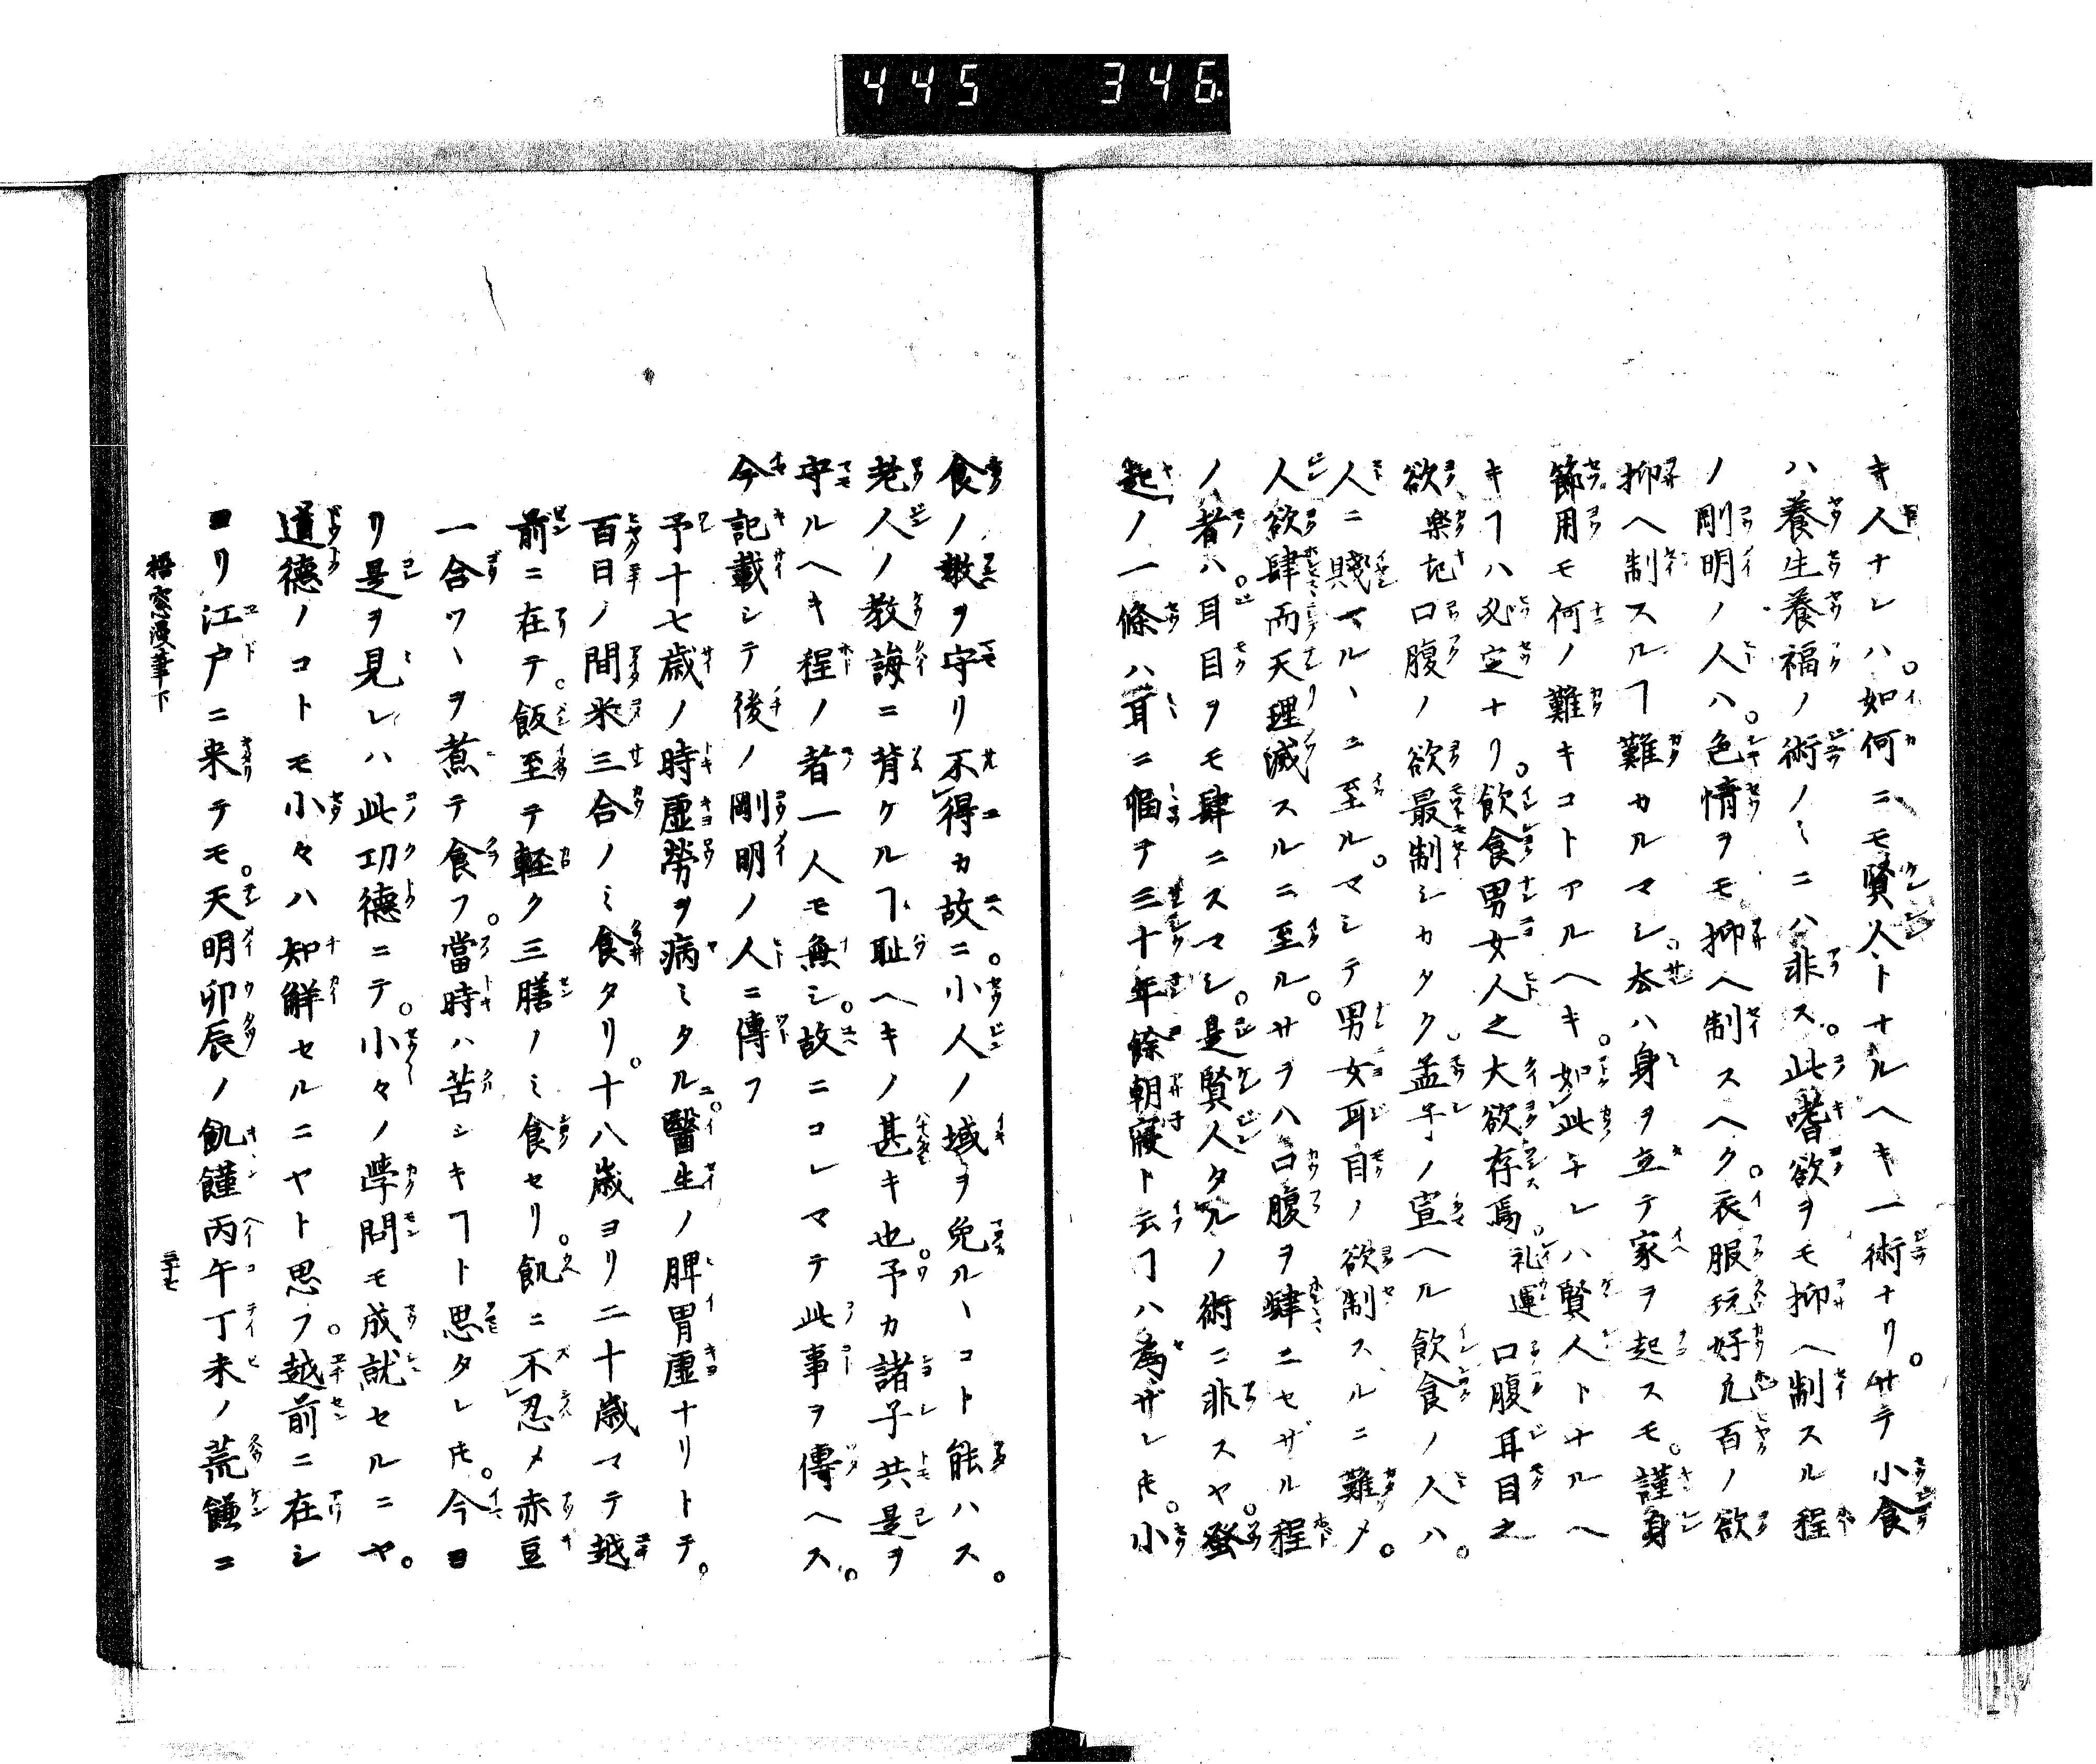 445 346
キ人ナレハ。如何ニモ賢人トナルヘキ一術ナリ。サテ小食
ハ養生養福ノ術ノミニハ非ス。此嗜欲ヲモ抑ヘ制スル程
ノ剛明ノ人ハ。色情ヲモ抑ヘ制スヘク。衣服玩好凢百ノ欲
抑ヘ制スルヿ難カルマシ。サハ身ヲ立テ家ヲ起スモ。謹身
節用モ何ノ難キコトアルヘキ。如此ナレハ賢人トナルヘ
キヿハ必定ナリ。飲食男女人之大欲存焉。礼運口腹耳目之
欲楽
口腹ノ欲最制シカタク。孟子ノ宣ヘル飲食ノ人ハ。
人ニ賤マルヽニ至ル。マシテ男女耳目ノ欲制スルニ難メ。
人欲肆而天理滅スルニ至ル。サラハ口腹ヲ肆ニセザル程
ノ者ハ。耳目ヲモ肆ニスマシ。是賢人タルノ術ニ非スヤ。蚤
起ノ一條ハ耳ニ
三十年餘朝寢ト云ヿハ為ザレ𪜈。小
食ノ教ヲ守リ不得カ故ニ。小人ノ域ヲ免ルヽコト能ハス。
老人ノ教誨ニ背ケルヿ耻ヘキノ甚キ也。予カ諸子共是ヲ
守ルヘキ程ノ者一人モ無シ。故ニコレマテ此事ヲ傳ヘス。
今記載シテ後ノ剛明ノ人ニ傳フ
予十七歳ノ時虚勞ヲ病ミタルニ。醫生ノ脾胃虚ナリトテ。
百日ノ間米三合ノミ食タリ。十八歳ヨリ二十歳マテ越
前ニ在テ。飯至テ軽ク三膳ノミ食セリ。飢ニ不忍メ赤豆
一合ツヽヲ煮テ食フ。當時ハ苦シキヿト思タレ𪜈。今ヨ
リ是ヲ見レハ此功德ニテ。小々ノ學問モ成就セルニヤ。
道德ノコトモ小々ハ知解セルニヤト思フ。越前ニ在シ
ヨリ江戸ニ来テモ。天明卯辰ノ飢饉丙午丁未ノ荒饉ニ
梧窓漫筆下
三十七